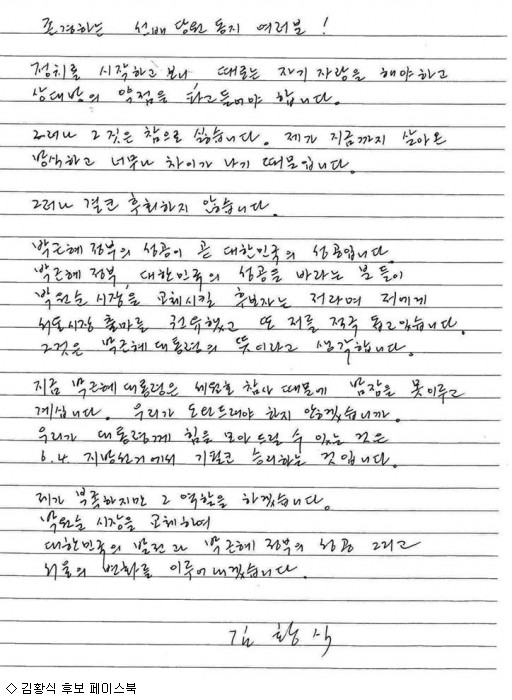 존경하는 선배 당원 동지 여러분!
정치를 시작하고 보니 때로는 자기 자랑을 해야하고
상대방의 약점을 파고들어야 합니다.
그러나 그것은 참으로 싫습니다. 제가 지금까지 살아온
방식하고 너무나 차이가 나기 때문입니다.
그러나 결코 후회하지 않습니다.
박근혜 정부의 성공이 곧 대한민국의 성공입니다.
박근혜 정부, 대한민국의 성공을 바라는 분들이
박원순 시장을 교체시킬 후보자는 저라며 저에게
서울시장 출마를 권유했고 또 저를 적극 돕고있습니다.
그것은 박근혜 대통령의 뜻이라고 생각합니다.
지금 박근혜 대통령은 세월호 참사 때문에 밤잠을 못이루고
계십니다. 우리가 도와드려야 하지 않겠습니까.
우리가 대통령께 힘을 모아 드릴 수 있는 것은
6.4. 지방선거에서 기필코 승리하는 것입니다.
제가 부족하지만 그 역할을 하겠습니다.
박원순 시장을 교체하여
대한민국의 발전과 박근혜 정부의 성공 그리고
서울의 변화를 이루어내겠습니다.
김황식
◇ 김황식 후보 페이스북